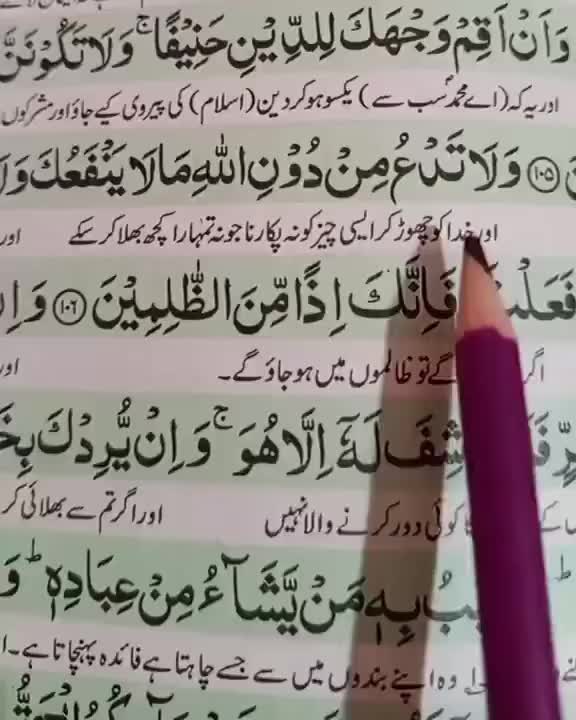 وَاَنْ اَقِمْ وَجْهَكَ لِلدِّيْنِ حَنِيْفًا ۚ وَلَا تَكُوْنَنَّ
اور یہ کہ (اے محمدؐ سب سے) یکسو ہو کر دین (اسلام) کی پیروی کیے جاؤ اور مشرکوں
۝۱۰۵ وَلَا تَدْعُ مِنْ دُوْنِ اللّٰهِ مَا لَا يَنْفَعُكَ وَلَ
اور خدا کو چھوڑ کر ایسی چیز کو نہ پکارنا جو نہ تمہارا کچھ بھلا کر سکے اور
فَعَلْتَ فَاِنَّكَ اِذًا مِّنَ الظّٰلِمِيْنَ ۝۱۰۶ وَاِ
اگر گے تو ظالموں میں ہو جاؤ گے۔ اور
كَاشِفَ لَهٗۤ اِلَّا هُوَ ۚ وَاِنْ يُّرِدْكَ بِخَ
کوئی دور کرنے والا نہیں اور اگر تم سے بھلائی کر
بِهٖ مَنْ يَّشَآءُ مِنْ عِبَادِهٖ ؕ وَ
وہ اپنے بندوں میں سے جسے چاہتا ہے فائدہ پہنچاتا ہے۔